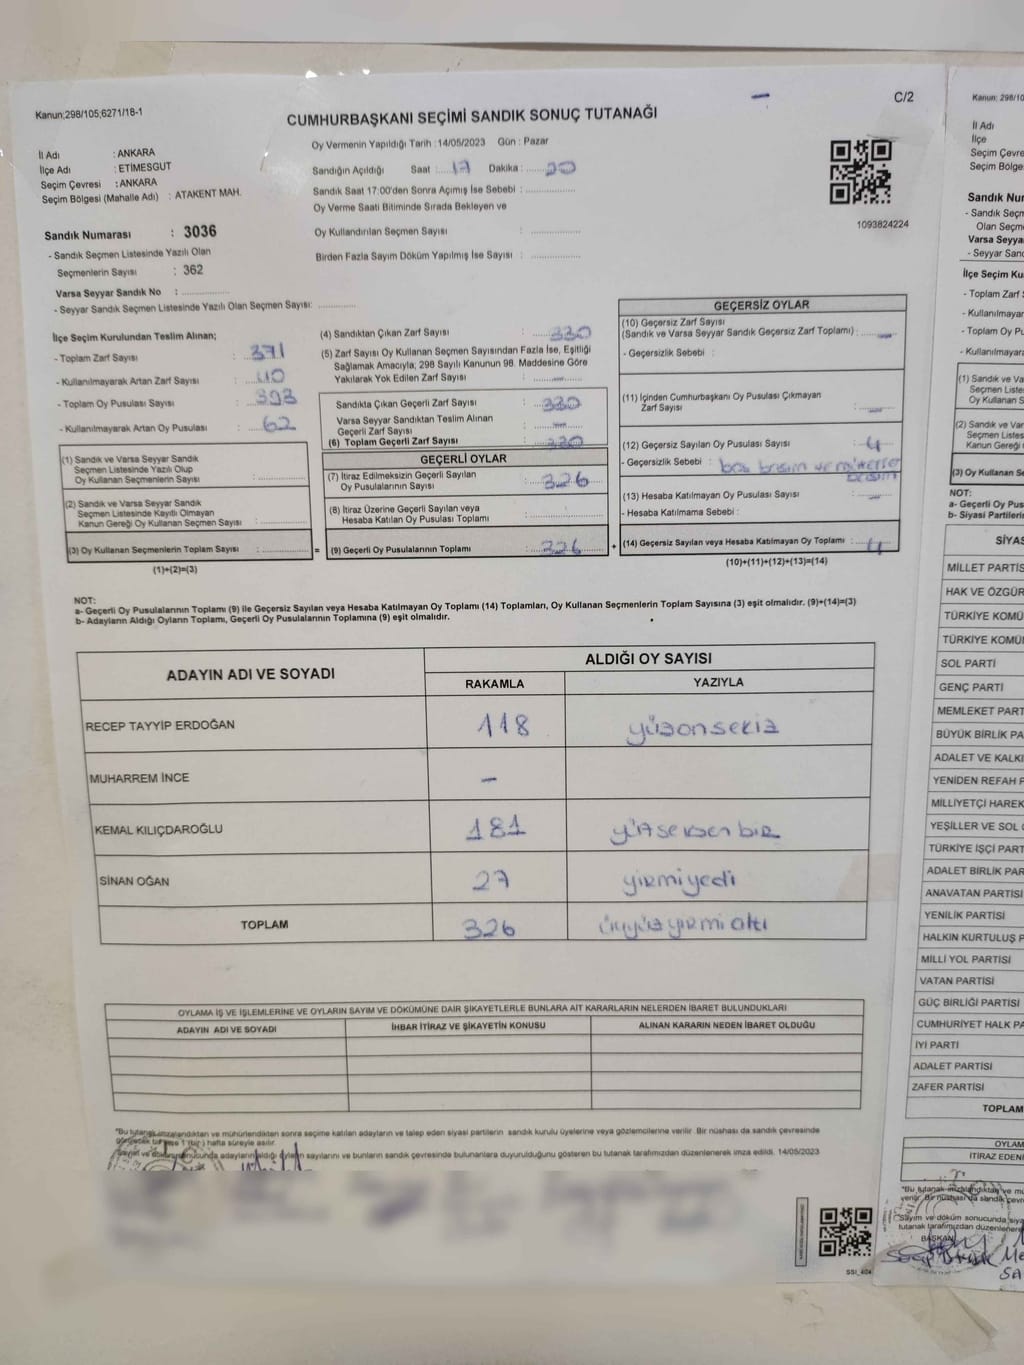 Kanun;298/105;6271/18-1
C/2
CUMHURBAŞKANI SEÇİMİ SANDIK SONUÇ TUTANAĞI
İl Adı : ANKARA
İlçe Adı : ETİMESGUT
Seçim Çevresi : ANKARA
Seçim Bölgesi (Mahalle Adı) : ATAKENT MAH.
Oy Vermenin Yapıldığı Tarih :14/05/2023 Gün : Pazar
Sandığın Açıldığı Saat : 17 Dakika : 20
Sandık Saat 17:00'den Sonra Açımış İse Sebebi :
Oy Verme Saati Bitiminde Sırada Bekleyen ve
Oy Kullandırılan Seçmen Sayısı :
Birden Fazla Sayım Döküm Yapılmış İse Sayısı :
1093824224
Sandık Numarası : 3036
- Sandık Seçmen Listesinde Yazılı Olan
Seçmenlerin Sayısı : 362
Varsa Seyyar Sandık No :
- Seyyar Sandık Seçmen Listesinde Yazılı Olan Seçmen Sayısı:
İlçe Seçim Kurulundan Teslim Alınan;
- Toplam Zarf Sayısı : 371
- Kullanılmayarak Artan Zarf Sayısı : 40
- Toplam Oy Pusulası Sayısı : 393
- Kullanılmayarak Artan Oy Pusulası : 62
(1) Sandık ve Varsa Seyyar Sandık
Seçmen Listesinde Yazılı Olup
Oy Kullanan Seçmenlerin Sayısı :
(2) Sandık ve Varsa Seyyar Sandık
Seçmen Listesinde Kayıtlı Olmayan
Kanun Gereği Oy Kullanan Seçmen Sayısı :
(3) Oy Kullanan Seçmenlerin Toplam Sayısı : =
(1)+(2)=(3)
(4) Sandıktan Çıkan Zarf Sayısı : 330
(5) Zarf Sayısı Oy Kullanan Seçmen Sayısından Fazla İse, Eşitliği
Sağlamak Amacıyla; 298 Sayılı Kanunun 98. Maddesine Göre
Yakılarak Yok Edilen Zarf Sayısı : —
Sandıkta Çıkan Geçerli Zarf Sayısı : 330
Varsa Seyyar Sandıktan Teslim Alınan
Geçerli Zarf Sayısı : —
(6) Toplam Geçerli Zarf Sayısı : 330
GEÇERLİ OYLAR
(7) İtiraz Edilmeksizin Geçerli Sayılan
Oy Pusulalarının Sayısı : 326
(8) İtiraz Üzerine Geçerli Sayılan veya
Hesaba Katılan Oy Pusulası Toplamı :
(9) Geçerli Oy Pusulalarının Toplamı : 326 +
GEÇERSİZ OYLAR
(10) Geçersiz Zarf Sayısı
(Sandık ve Varsa Seyyar Sandık Geçersiz Zarf Toplamı) : —
- Geçersizlik Sebebi :
(11) İçinden Cumhurbaşkanı Oy Pusulası Çıkmayan
Zarf Sayısı : —
(12) Geçersiz Sayılan Oy Pusulası Sayısı : 4
- Geçersizlik Sebebi :
(13) Hesaba Katılmayan Oy Pusulası Sayısı : —
- Hesaba Katılmama Sebebi :
(14) Geçersiz Sayılan veya Hesaba Katılmayan Oy Toplamı : 4
(10)+(11)+(12)+(13)=(14)
NOT:
a- Geçerli Oy Pusulalarının Toplamı (9) ile Geçersiz Sayılan veya Hesaba Katılmayan Oy Toplamı (14) Toplamları, Oy Kullanan Seçmenlerin Toplam Sayısına (3) eşit olmalıdır. (9)+(14)=(3)
b- Adayların Aldığı Oyların Toplamı, Geçerli Oy Pusulalarının Toplamına (9) eşit olmalıdır.
ADAYIN ADI VE SOYADI
ALDIĞI OY SAYISI
RAKAMLA YAZIYLA
RECEP TAYYİP ERDOĞAN 118 yüzonsekiz
MUHARREM İNCE —
KEMAL KILIÇDAROĞLU 181 yüzseksen bir
SİNAN OĞAN 27 yirmiyedi
TOPLAM 326 üçyüzyirmi altı
OYLAMA İŞ VE İŞLEMLERİNE VE OYLARIN SAYIM VE DÖKÜMÜNE DAİR ŞİKAYETLERLE BUNLARA AİT KARARLARIN NELERDEN İBARET BULUNDUKLARI
ADAYIN ADI VE SOYADI İHBAR İTİRAZ VE ŞİKAYETİN KONUSU ALINAN KARARIN NEDEN İBARET OLDUĞU
"Bu tutanak imzalandıktan ve mühürlendikten sonra seçime katılan adayların ve talep eden siyasi partilerin sandık kurulu üyelerine veya gözlemcilerine verilir. Bir nüshası da sandık çevresinde
1 (bir) hafta süreyle asılır.
adayların aldığı oyların sayılarını ve bunların sandık çevresinde bulunanlara duyurulduğunu gösteren bu tutanak tarafımızdan düzenlenerek imza edildi. 14/05/2023
Kanun: 298/10
İl Adı
İlçe
Seçim Çevre
Seçim Bölge
Sandık Nu
- Sandık Seçm
Olan Seçm
Varsa Seyya
- Seyyar Sand
İlçe Seçim Ku
- Toplam Zarf
- Kullanılmayar
- Toplam Oy Pu
- Kullanılmayar
(1) Sandık ve Va
Seçmen Liste
Oy Kullanan S
(2) Sandık ve Var
Seçmen Listesi
Kanun Gereği O
(3) Oy Kullanan Se
NOT:
a- Geçerli Oy Pus
b- Siyasi Partilerin
SİYAS
MİLLET PARTİS
HAK VE ÖZGÜR
TÜRKİYE KOMÜ
TÜRKİYE KOMÜ
SOL PARTİ
GENÇ PARTİ
MEMLEKET PART
BÜYÜK BİRLİK PA
ADALET VE KALKI
YENİDEN REFAH P
MİLLİYETÇİ HAREK
YEŞİLLER VE SOL
TÜRKİYE İŞÇİ PART
ADALET BİRLİK PAR
ANAVATAN PARTİSİ
YENİLİK PARTİSİ
HALKIN KURTULUŞ P
MİLLİ YOL PARTİSİ
VATAN PARTİSİ
GÜÇ BİRLİĞİ PARTİSİ
CUMHURİYET HALK PA
İYİ PARTİ
ADALET PARTİSİ
ZAFER PARTİSİ
TOPLAM
OYLAM
İTİRAZ EDENİ
"Bu tutanak imzalandıktan ve mü
verilir. Bir nüshası da sandık çevre
Sayım ve döküm sonucunda siya
tutanak tarafımızdan düzenlenere
BAŞKAN